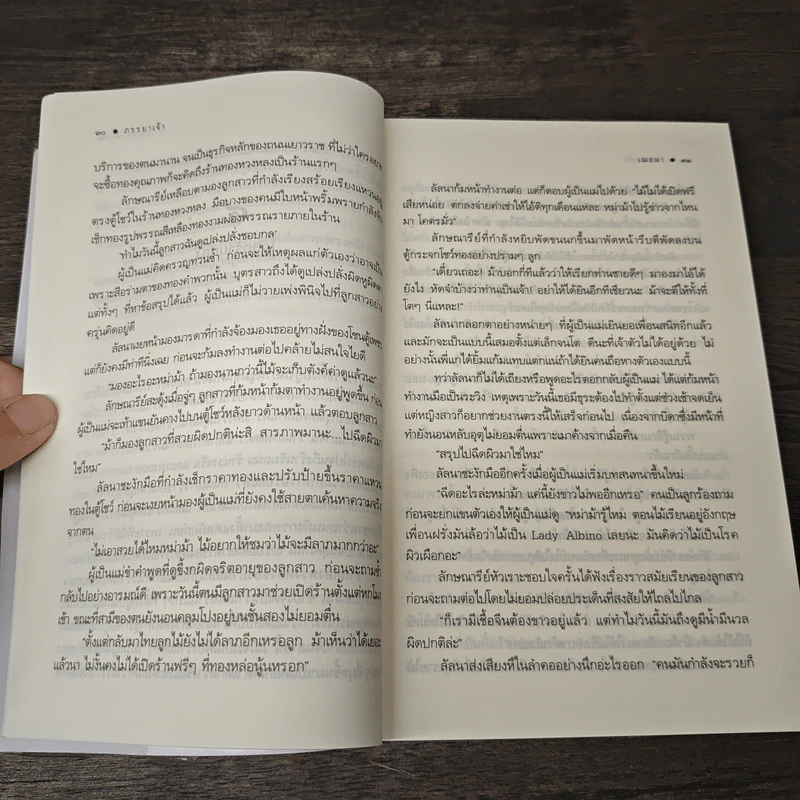 ๓๐ ● ภรรยาเจ้า
บริการของตนมานาน จนเป็นธุรกิจหลักของถนนเยาวราช ที่ไม่ว่าใคร
จะซื้อทองคุณภาพก็จะคิดถึงร้านทองหวงหลงเป็นร้านแรกๆ
ลักษณารีย์เหลือบตามองลูกสาวที่กำลังเรียงสร้อยเรียงแหวน
ตรงตู้โชว์ในร้านทองหวงหลง มือบางของคนมีใบหน้าพริ้มพรายกำลัง
เช็กทองรูปพรรณสีเหลืองทองงามผ่องพรรณรายภายในร้าน
'ทำไมวันนี้ลูกสาวฉันดูเปล่งปลั่งชอบกล'
ผู้เป็นแม่คิดครวญทวนซ้ำ ก่อนจะให้เหตุผลแก่ตัวเองว่าอาจเป็น
เพราะสีอร่ามตาของทองคำพวกนั้น บุตรสาวถึงได้ดูเปล่งปลั่งผิดหูผิดตา
แต่ทั้งๆ ที่หาข้อสรุปได้แล้ว ผู้เป็นแม่ก็ไม่วายเพ่งพินิจไปที่ลูกสาวอย่าง
ครุ่นคิดอยู่ดี
ลัลนาเงยหน้ามองมารดาที่กำลังจ้องมองเธออยู่ทางฝั่งของโซนตู้เพชร
แต่ก็ยังคงมีท่าทีนิ่งเฉย ก่อนจะก้มลงทำงานต่อไปคล้ายไม่สนใจไยดี
"มองอะไรอะหม่าม้า ถ้ามองนานกว่านี้ไม้จะเก็บตังค์ค่าดูแล้วนะ"
ลักษณารีย์สะดุ้งเมื่อจู่ๆ ลูกสาวที่ก้มหน้าก้มตาทำงานอยู่พูดขึ้น ก่อน
ผู้เป็นแม่จะเท้าแขนยันคางไปบนตู้โชว์หลังยาวด้านหน้า แล้วตอบลูกสาว
"ม้าก็มองลูกสาวที่สวยผิดปกติน่ะสิ สารภาพมานะ...ไปฉีดผิวมา
ใช่ไหม"
ลัลนาชะงักมือที่กำลังเช็กราคาทองและปรับป้ายขึ้นราคาแหวน
ทองในตู้โชว์ ก่อนจะเงยหน้ามองผู้เป็นแม่ที่ยังคงใช้สายตาเค้นหาความจริง
จากตน
"ไม่เอาสวยได้ไหมหม่าม้า ไม้อยากให้ชมว่าไม้จะมีลาภมากกว่าอะ"
ผู้เป็นแม่ขำคำพูดที่ดูขี้งกผิดจริตอายุของลูกสาว ก่อนจะถามซ้ำ
กลับไปอย่างอารมณ์ดี เพราะวันนี้ตนมีลูกสาวมาช่วยเปิดร้านตั้งแต่หกโมง
เช้า ขณะที่สามีของตนยังนอนคลุมโปงอยู่บนชั้นสองไม่ยอมตื่น
"ตั้งแต่กลับมาไทยลูกไม้ยังไม่ได้ลาภอีกเหรอลูก ม้าเห็นว่าได้เยอะ
แล้วนา ไม่งั้นคงไม่ได้เปิดร้านฟรีๆ ที่ทองหล่อนู้นหรอก"
เฌอมา ● ๓๑
ลัลนาก้มหน้าทำงานต่อ แต่ก็ตอบผู้เป็นแม่ไปด้วย "ไม้ไม่ได้เปิดฟรี
เสียหน่อย ตกลงจ่ายค่าเช่าให้ไอ้ติทุกเดือนแหละ หม่าม้าไปรู้ข่าวจากไหน
มา โคตรมั่ว"
ลักษณารีย์ที่กำลังหยิบพัดขนนกขึ้นมาพัดหน้ารีบตีพัดลงบน
ตู้กระจกโชว์ทองอย่างปรามๆ ลูก
"เดี๋ยวเถอะ! ม้าบอกกี่ทีแล้วว่าให้เรียกท่านชายดีๆ มาองมาไอ้ได้
ยังไง หัดจำบ้างว่าท่านเป็นเจ้า! อย่าให้ได้ยินอีกทีเชียวนะ ม้าจะตีให้ทั้งที่
โตๆ นี่แหละ!"
ลัลนากลอกตาอย่างหน่ายๆ ที่ผู้เป็นแม่เยินยอเพื่อนสนิทอีกแล้ว
และมักจะเป็นแบบนี้เสมอตั้งแต่เล็กจนโต ดีนะที่เจ้าตัวไม่ได้อยู่ด้วย ไม่
อย่างนั้นพี่แกได้ยิ้มแก้มแทบแตกแน่ถ้าได้ยินคนถือหางตัวเองแบบนี้
ทว่าลัลนาก็ไม่ได้เถียงหรือพูดอะไรตอกกลับผู้เป็นแม่ ได้แต่ก้มหน้า
ทำงานมือเป็นระวิง เหตุเพราะวันนี้เธอมีธุระต้องไปทำตั้งแต่ช่วงเช้าจดเย็น
แต่หญิงสาวก็อยากช่วยงานตรงนี้ให้เสร็จก่อนไป เนื่องจากบิดาซึ่งมีหน้าที่
ทำยังนอนหลับอุตุไม่ยอมตื่นเพราะเมาค้างจากเมื่อคืน
"สรุปไปฉีดผิวมาใช่ไหม"
ลัลนาชะงักมืออีกครั้งเมื่อผู้เป็นแม่เริ่มบทสนทนาขึ้นใหม่
"ฉีดอะไรล่ะหม่าม้า แค่นี้ยังขาวไม่พออีกเหรอ" คนเป็นลูกร้องถาม
ก่อนจะยกแขนตัวเองให้ผู้เป็นแม่ดู "หม่าม้ารู้ไหม ตอนไม้เรียนอยู่อังกฤษ
เพื่อนฝรั่งมันล้อว่าไม้เป็น Lady Albino เลยนะ มันคิดว่าไม้เป็นโรค
ผิวเผือกอะ"
ลักษณารีย์หัวเราะชอบใจครั้นได้ฟังเรื่องราวสมัยเรียนของลูกสาว
ก่อนจะถามต่อไปโดยไม่ยอมปล่อยประเด็นที่สงสัยให้ไถลไปไกล
"ก็เรามีเชื้อจีนต้องขาวอยู่แล้ว แต่ทำไมวันนี้มันถึงดูมีน้ำมีนวล
ผิดปกติล่ะ"
ลัลนาส่งเสียงหึในลำคออย่างนึกอะไรออก "คนมันกำลังจะรวยก็